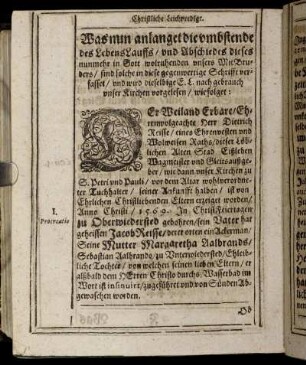 Christliche Leichpredigt.
Was nun anlanget die vmbstende
des Lebens Lauffs / vnd Abschiedes dieses
nunmehr in Gott wolruhenden vnsers MitBru-
ders / sind solche in diese gegenwertige Schrifft ver-
fasset / vnd wird dieselbige E. L. nach gebrauch
vnser Kirchen vorgelesen / wie folget:
DEr Weiland Erbare / Eh-
renwolgeachte Herr Dietrich
Reisse / eines Ehrenvesten und
Wolweisen Raths / dieser Löb-
lichen Alten Stad Eißleben
Wagmeister vnd Gleitsauffge-
ber / wie dann vnser Kirchen zu
S. Petri vnd Pauli / vor dem Altar wolverordne-
ter Tuchhalter / seiner Ankunfft halben / ist von
Ehrlichen Christliebenden Eltern erzeuget worden /
Anno Christi / 1569. In ChristFeiertagen
zu Oberwiederstedt gebohren / sein Vater hat
geheissen Jacob Reisse / derer orten ein Ackerman /
Seine Mutter Margaretha Aalbrands /
Sebastian Aalbrands / zu Vnterwiederstedt / Ehleib-
liche Tochter / von welchen seinen lieben Eltern / er
alsbald dem HErren Christo durchs Wasserbad im
Wort ist insinuirt / zugeführet vnd von Sünden Ab-
gewaschen worden.
I.
Procreatio
Ob